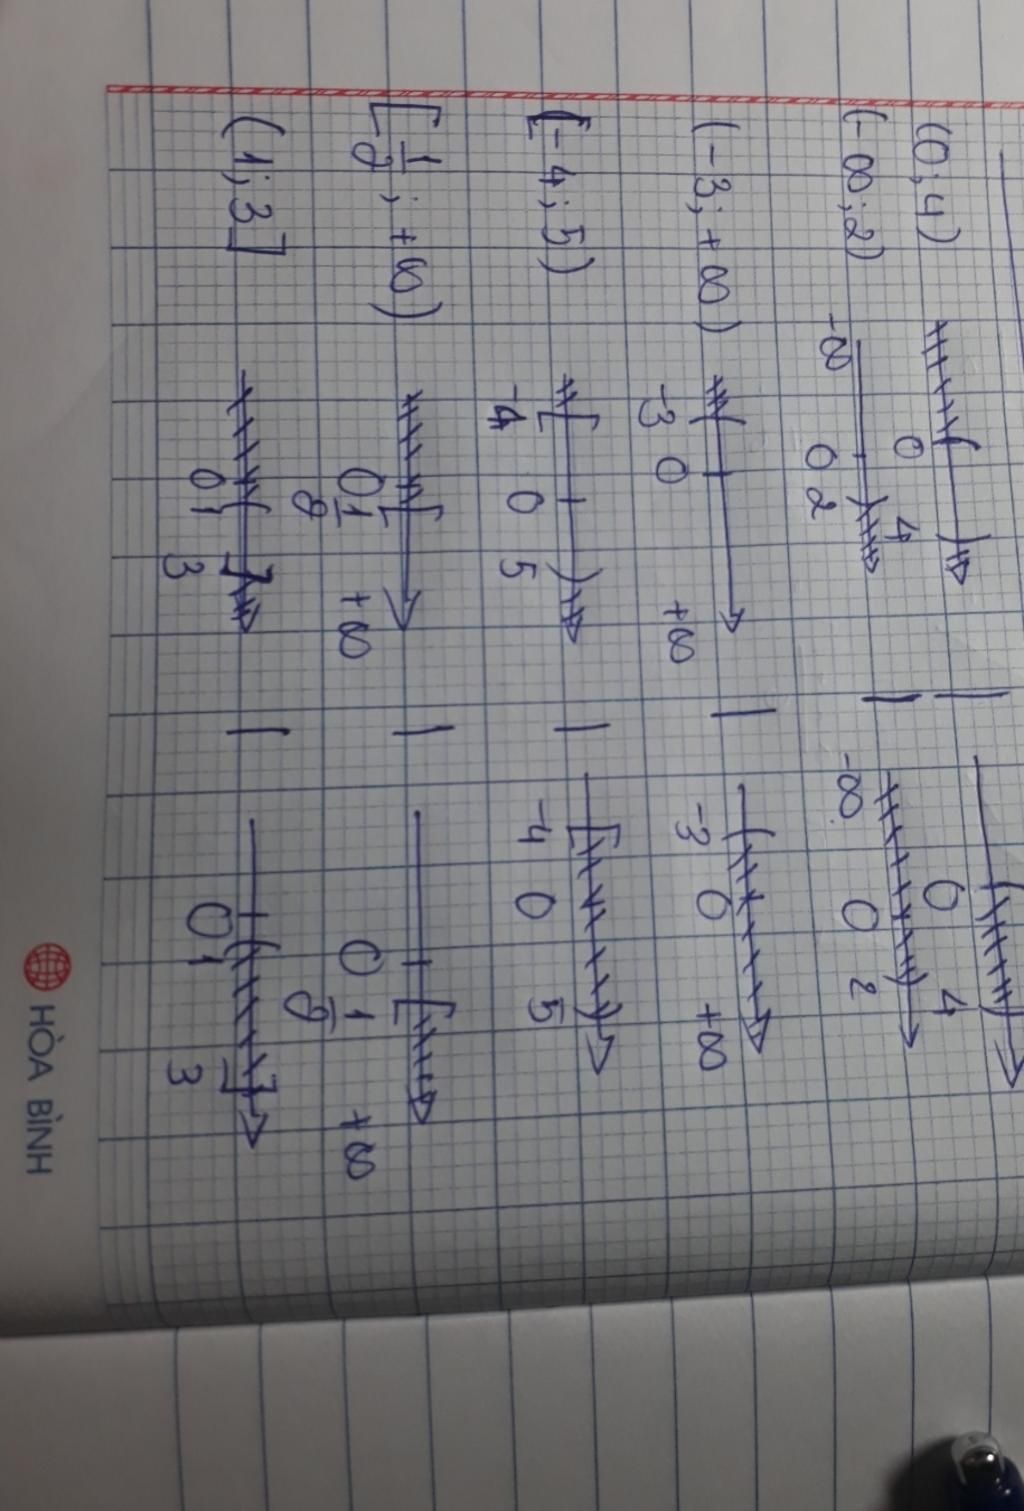 (0;4)
0 4 0 4
(-∞;2)
-∞ 0 2 -∞ 0 2
(-3;+∞)
-3 0 +∞ -3 0 +∞
[-4;5)
-4 0 5 -4 0 5
[1/2;+∞)
0 1/2 +∞ 0 1/2 +∞
(1;3]
0 1 3 0 1 3
HÒA BÌNH